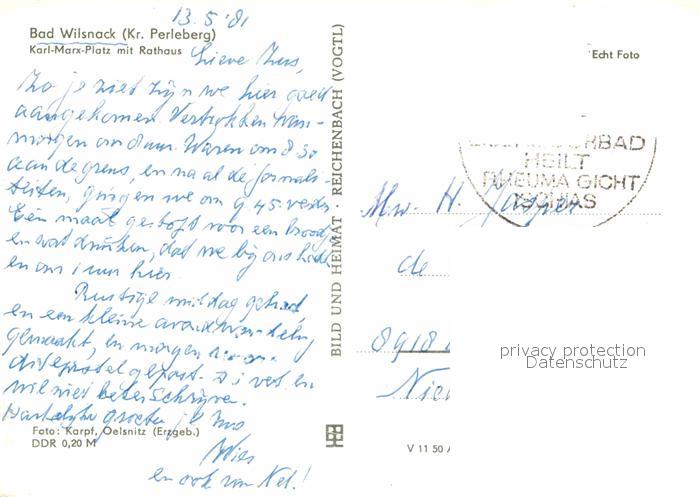 13.5.'81
Bad Wilsnack (Kr. Perleberg)
Karl-Marx-Platz mit Rathaus
Lieve Zus,
Zo je ziet zijn we hier goed
aangekomen. Vertrokken van-
morgen om 8 uur. Waren om 8 30
aan de grens, en na al de formali-
teiten, gingen we om 9 45 verder.
Eén maal gestopt voor een broodje
en wat drinken, dat we bij ons hadden
en om 1 uur hier.
Rustige middag gehad,
en een kleine avondwandeling
gemaakt, en morgen
gepost.
wil niet beter schrijven.
Hartelijke groeten je Zus
Wies
en ook van Nel!
Foto: Karpf, Oelsnitz (Erzgeb.)
DDR 0,20 M
BILD UND HEIMAT REICHENBACH (VOGTL)
Echt Foto
RBAD
HEILT
RHEUMA GICHT
ISCHIAS
Mw. H.
de
8918
Nie
V 11 50
privacy protection
Datenschutz